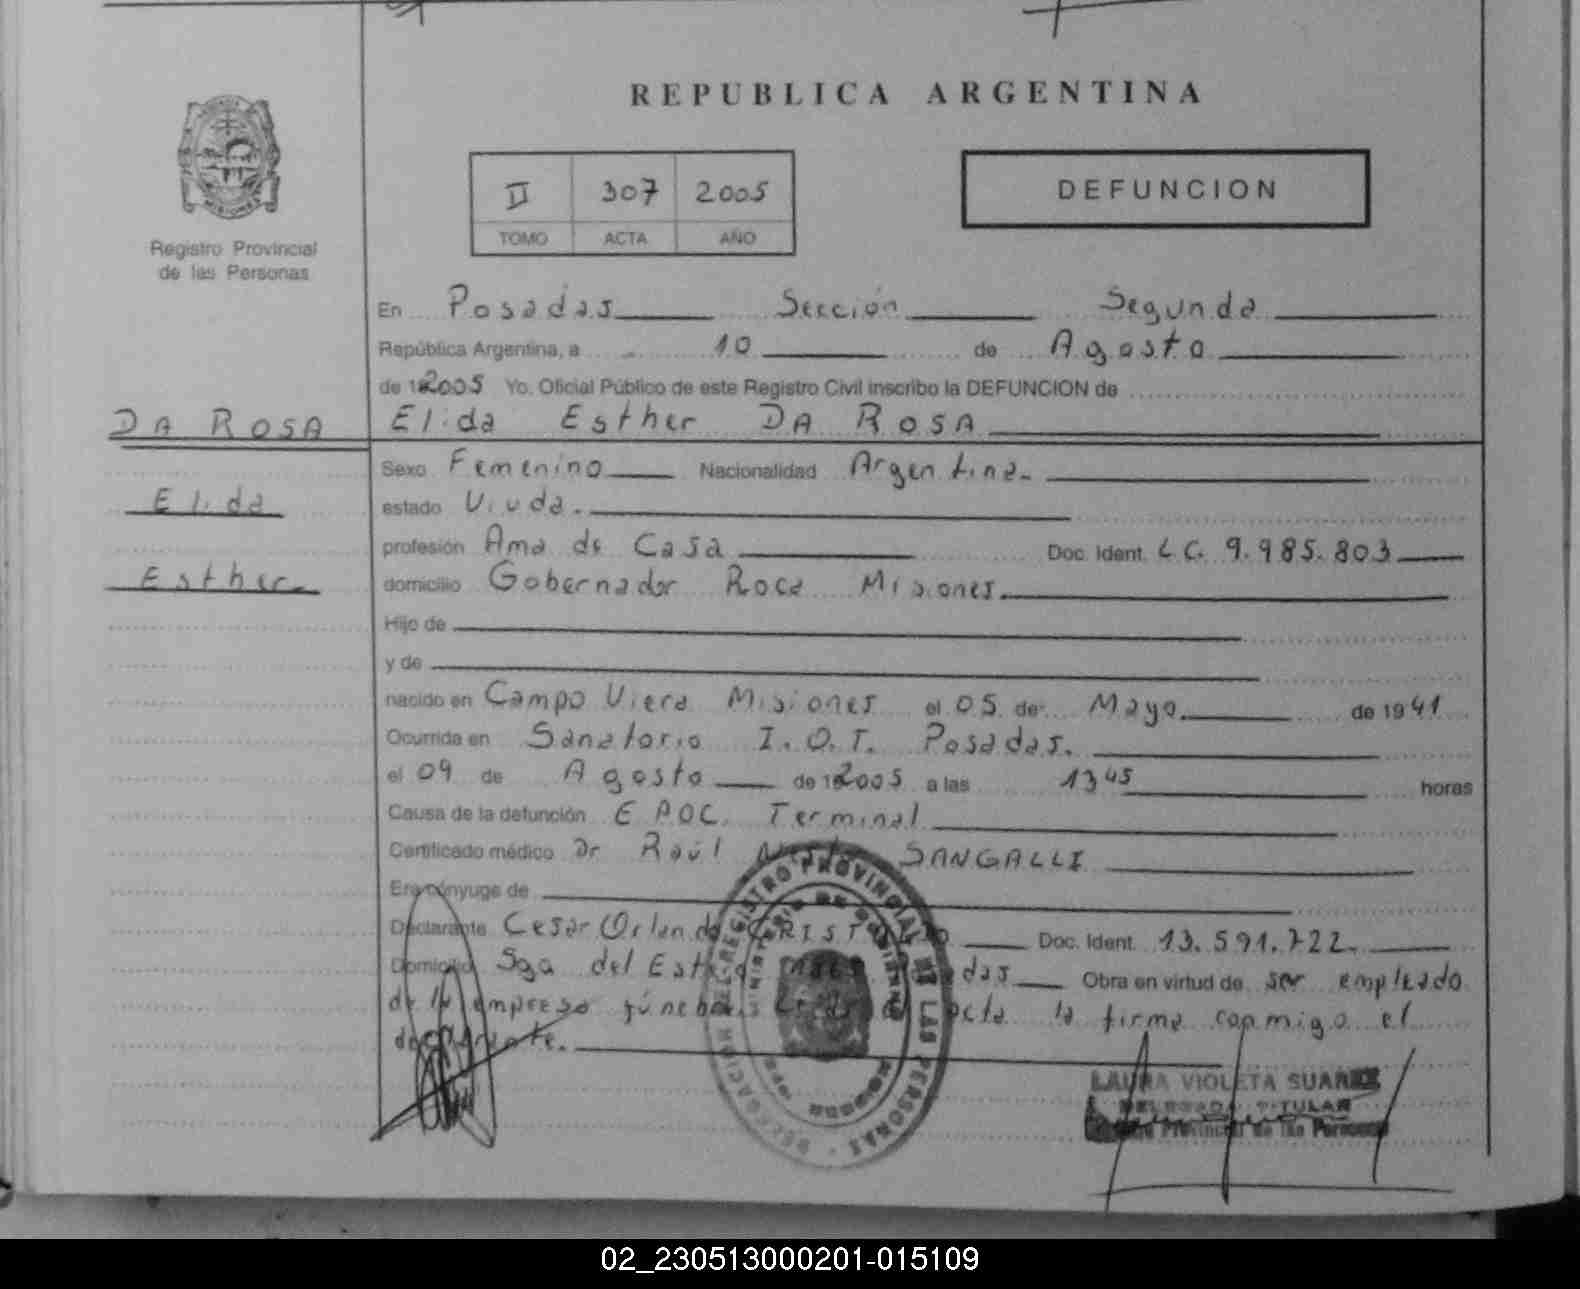 REPUBLICA ARGENTINA
MISIONES
Registro Provincial
de las Personas
II 307 2005
TOMO ACTA AÑO
DEFUNCION
En Posadas Sección Segunda
República Argentina, a 10 de Agosto
de 2005 Yo. Oficial Público de este Registro Civil inscribo la DEFUNCION de
DA ROSA
Elida Esther DA ROSA
Sexo Femenino Nacionalidad Argentina.
Elida
estado Viuda.
profesión Ama de Casa Doc. Ident. L.C. 9.985.803
Esther
domicilio Gobernador Roca Misiones
Hijo de
y de
nacido en Campo Viera Misiones el 05 de Mayo de 1941
Ocurrida en Sanatorio I.O.T. Posadas.
el 09 de Agosto de 2005 a las 13 45 horas
Causa de la defunción EPOC. Terminal
Certificado médico Dr Raúl SANGALLI
Era cónyuge de
Declarante Cesar Orlando Doc. Ident. 13.591.722.
Domicilio Sgo del Estero Obra en virtud de ser empleado
de la empresa fúnebre la firma conmigo el
declarante.
REGISTRO PROVINCIAL DE LAS PERSONAS
LAURA VIOLETA SUAREZ
DELEGADA TITULAR
Registro Provincial de las Personas
02_230513000201-015109